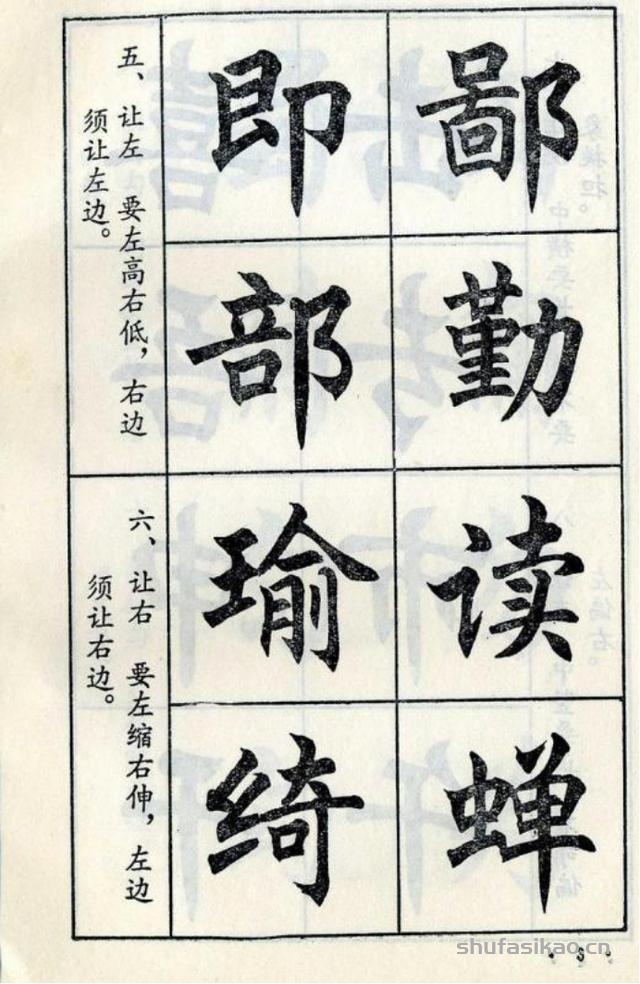 五、让左 要左高右低，右边
须让左边。
即 鄙
部 勤
六、让右 要左缩右伸，左边
须让右边。
瑜 读
绮 蝉
shufasikao.cn